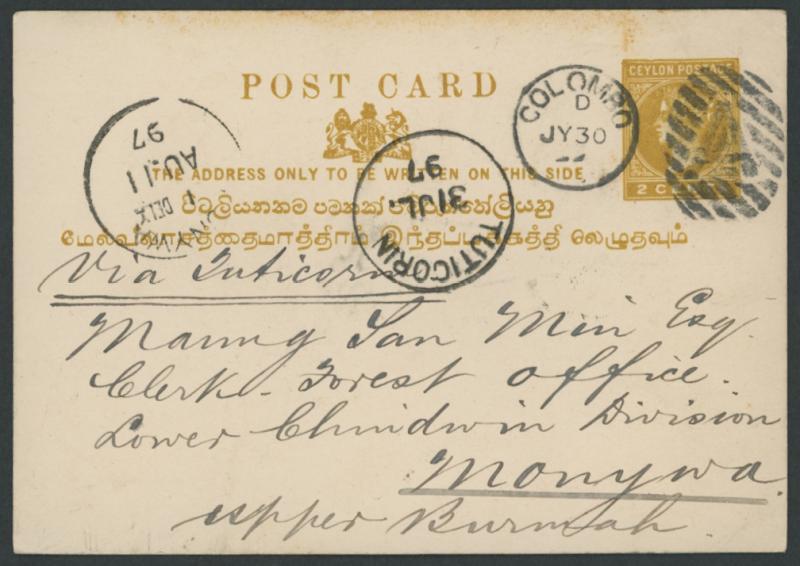 CEYLON POSTAGE
POST CARD
COLOMBO
D
JY 30
97
AU 11
1
DELY
THE ADDRESS ONLY TO BE WRITTEN ON THIS SIDE
TUTICORIN
31 JL.
97
மேல்விலாசத்தைமாத்திரம் இந்தப்பக்கத்தி லெழுதவும்
Via Tuticorin
Maung San Min Esqr.
Clerk - Forest Office.
Lower Chindwin Division
Monywa.
Upper Burmah.